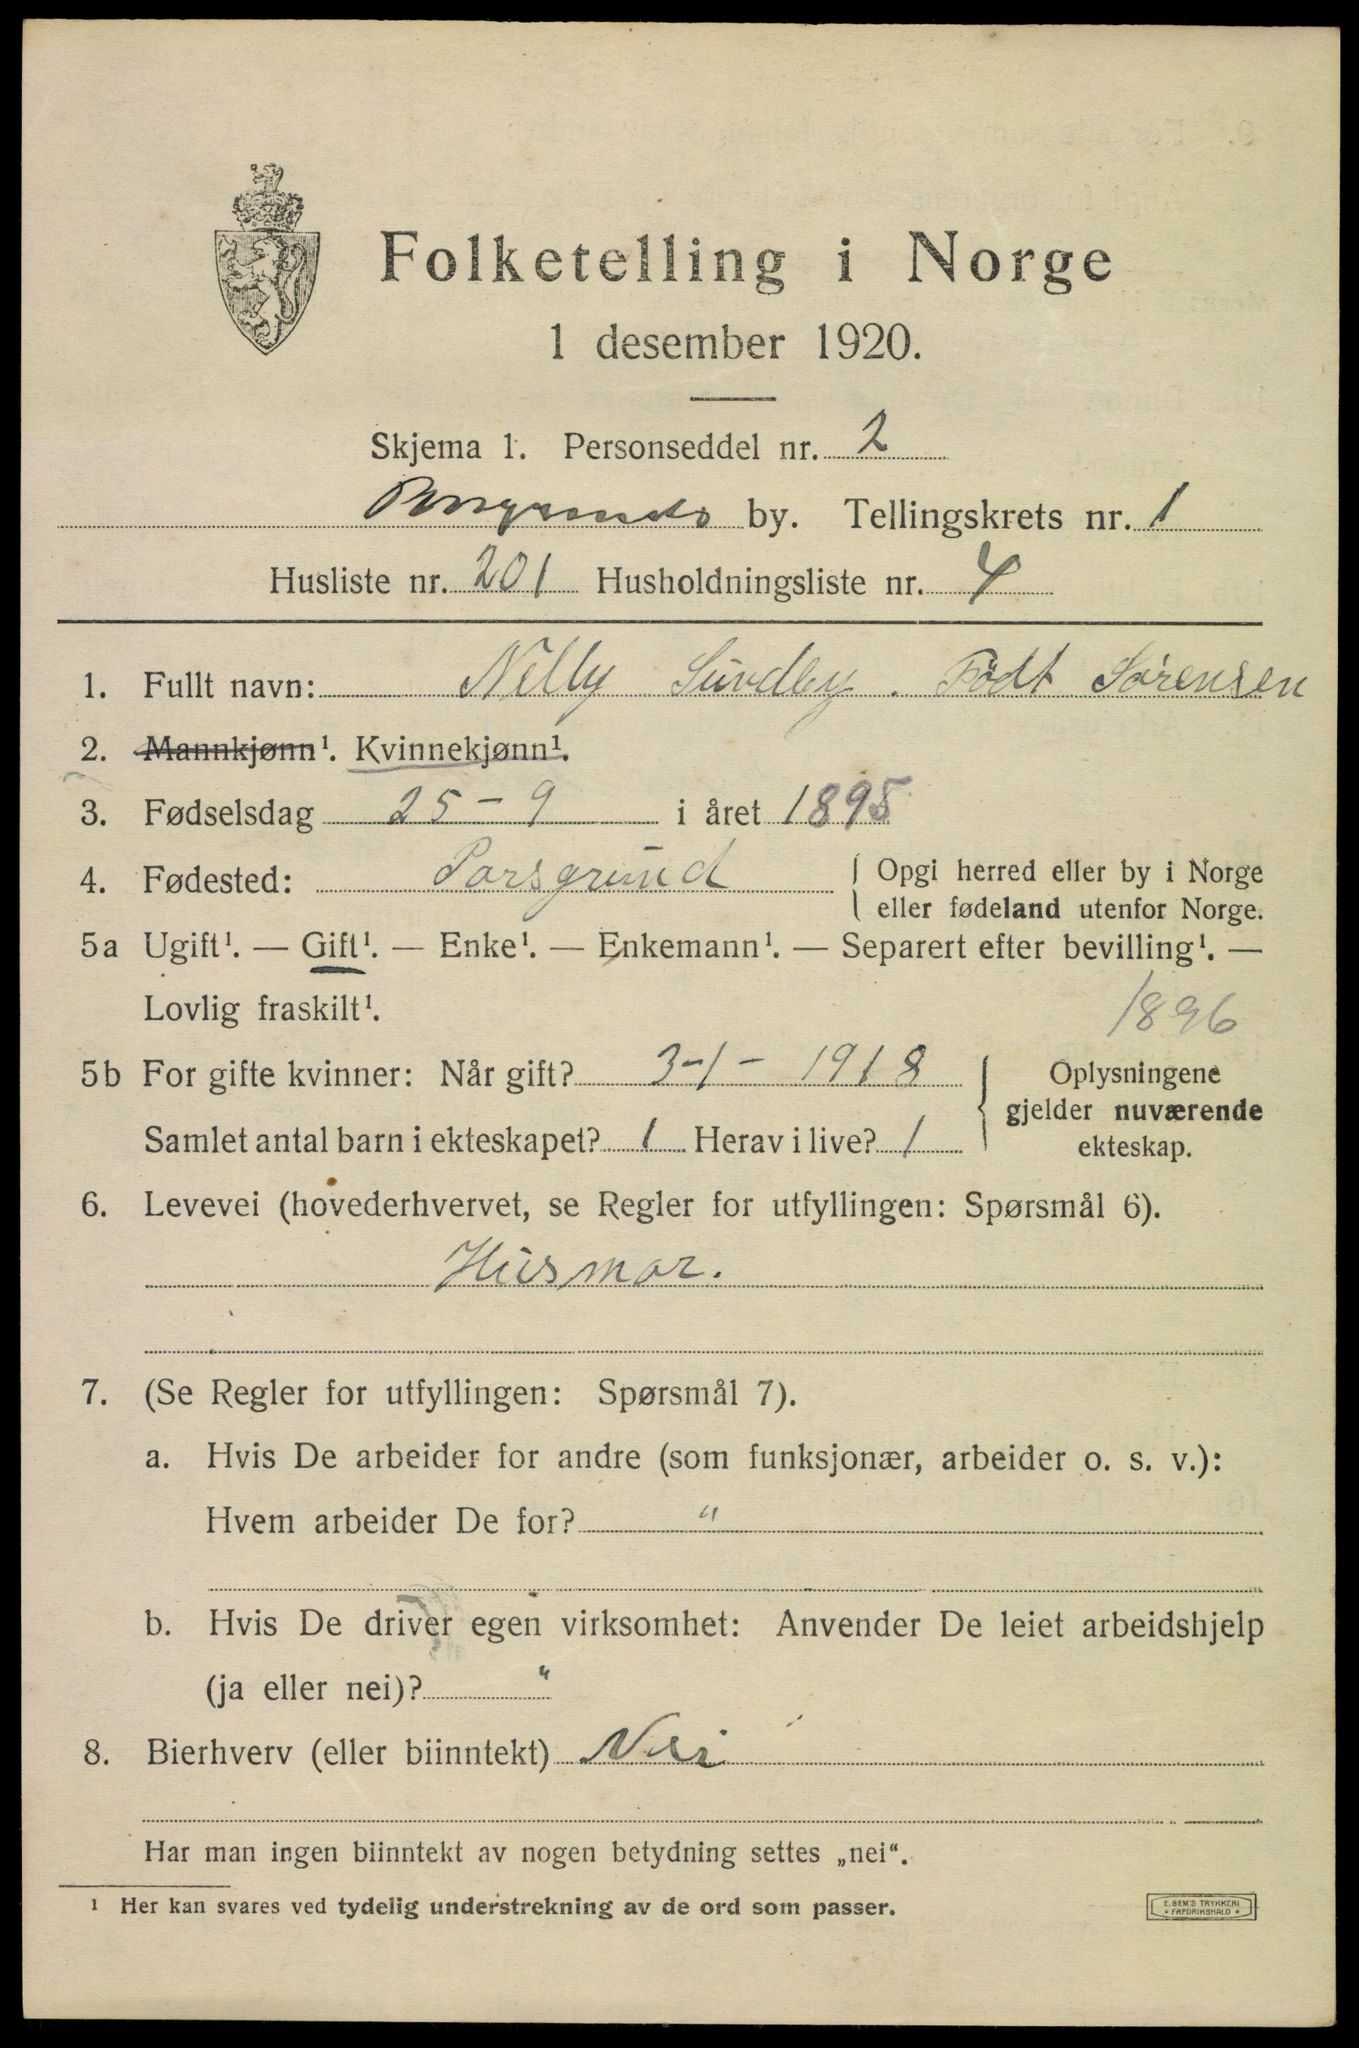 Folketelling i Norge
1 desember 1920.
Skjema 1. Personseddel nr. 2
Porsgrunds by. Tellingskrets nr. 1
Husliste nr. 201 Husholdningsliste nr. 4
1. Fullt navn: Nelly Sundby. Födt Sørensen
2. Mannkjønn¹. Kvinnekjønn¹.
3. Fødselsdag 25-9 i året 1895
4. Fødested: Porsgrund { Opgi herred eller by i Norge
eller fødeland utenfor Norge.
5a Ugift¹. — Gift¹. — Enke¹. — Enkemann¹. — Separert efter bevilling¹. —
Lovlig fraskilt¹. 1896
5b For gifte kvinner: Når gift? 3-1-1918 { Oplysningene
gjelder nuværende
Samlet antal barn i ekteskapet? 1 Herav i live? 1 ekteskap.
6. Levevei (hovederhvervet, se Regler for utfyllingen: Spørsmål 6).
Husmor.
7. (Se Regler for utfyllingen: Spørsmål 7).
a. Hvis De arbeider for andre (som funksjonær, arbeider o. s. v.):
Hvem arbeider De for? "
b. Hvis De driver egen virksomhet: Anvender De leiet arbeidshjelp
(ja eller nei)? "
8. Bierhverv (eller biinntekt) Nei
Har man ingen biinntekt av nogen betydning settes „nei“.
¹ Her kan svares ved tydelig understrekning av de ord som passer.
E. SEM'S TRYKKERI
* FREDRIKSHALD *